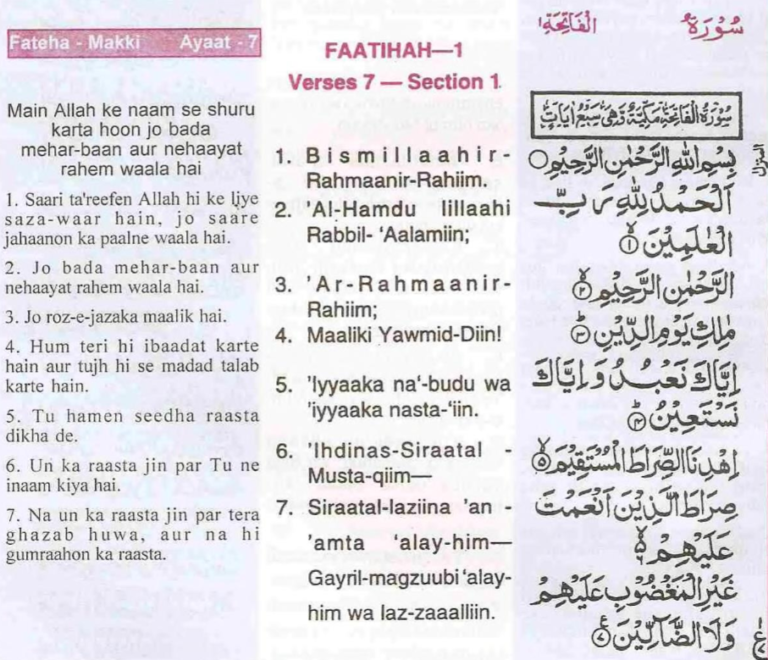 Fateha - Makki Ayaat - 7
Main Allah ke naam se shuru
karta hoon jo bada
mehar-baan aur nehaayat
rahem waala hai
1. Saari ta'reefen Allah hi ke liye
saza-waar hain, jo saare
jahaanon ka paalne waala hai.
2. Jo bada mehar-baan aur
nehaayat rahem waala hai.
3. Jo roz-e-jazaka maalik hai.
4. Hum teri hi ibaadat karte
hain aur tujh hi se madad talab
karte hain.
5. Tu hamen seedha raasta
dikha de.
6. Un ka raasta jin par Tu ne
inaam kiya hai.
7. Na un ka raasta jin par tera
ghazab huwa, aur na hi
gumraahon ka raasta.
FAATIHAH—1
Verses 7 — Section 1
1. Bismillaahir-
Rahmaanir-Rahiim.
2. 'Al-Hamdu lillaahi
Rabbil- 'Aalamiin;
3. 'Ar-Rahmaanir-
Rahiim;
4. Maaliki Yawmid-Diin!
5. 'Iyyaaka na‘-budu wa
'iyyaaka nasta-‘iin.
6. 'Ihdinas-Siraatal -
Musta-qiim—
7. Siraatal-laziina 'an -
'amta ‘alay-him—
Gayril-magzuubi ‘alay-
him wa laz-zaaalliin.
سُوْرَةُ الْفَاتِحَةِ ١
سُوْرَةُ الْفَاتِحَةِ مَكِّيَّةٌ وَّهِىَ سَبْعُ اٰيَاتٍ
بِسْمِ اللهِ الرَّحْمٰنِ الرَّحِيْمِ ○
اَلْحَمْدُ لِلّٰهِ رَبِّ
الْعٰلَمِيْنَ ۙ ١
الرَّحْمٰنِ الرَّحِيْمِ ۙ ٢
مٰلِكِ يَوْمِ الدِّيْنِ ؕ ٣
اِيَّاكَ نَعْبُدُ وَاِيَّاكَ
نَسْتَعِيْنُ ؕ ٤
اِهْدِنَا الصِّرَاطَ الْمُسْتَقِيْمَ ۙ ٥
صِرَاطَ الَّذِيْنَ اَنْعَمْتَ
عَلَيْهِمْ ۙ ٦
غَيْرِ الْمَغْضُوْبِ عَلَيْهِمْ
وَلَا الضَّآلِّيْنَ ٧